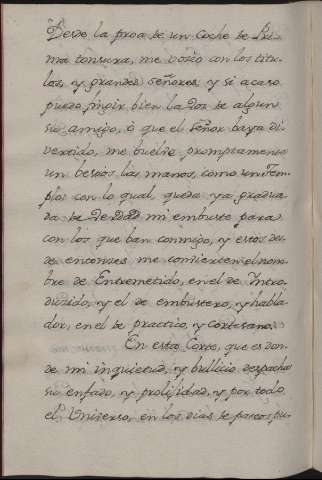 Desde la proa de un Coche de Pri-
ma tonsura, me voséo con los titu-
los, y grandes Señores, y si acaso
puedo fingir bien la voz de algun
su amigo, ò que el Señor baya di-
vertido, me buelve promptamente
un besoos las manos, como un Tem-
plo: con lo qual, queda ya gradua-
da de verdad mi embuste para
con los que ban conmigo, y estos des-
de entonces me comvierten el nom-
bre de Entremetido, en el de Intro-
ducido, y el de embustero, y habla-
dor, en el de practico, y Cortesano.
En esta Corte, que es don-
de mi inquietud, y bullicio despacha
su enfado, y prolijidad, y por todo
el Universo, en los dias de paseos pu-